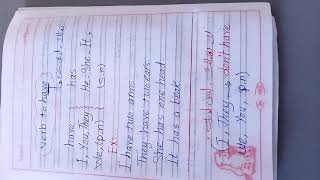 (verb to have)
have
has
I, You, They
He, She, It,
We, (p.n)
(s.n)
Ex:
I have two arms
They have two ears.
She has one head
It has a beak.
(I, They → don't have
We, You, (p.n)